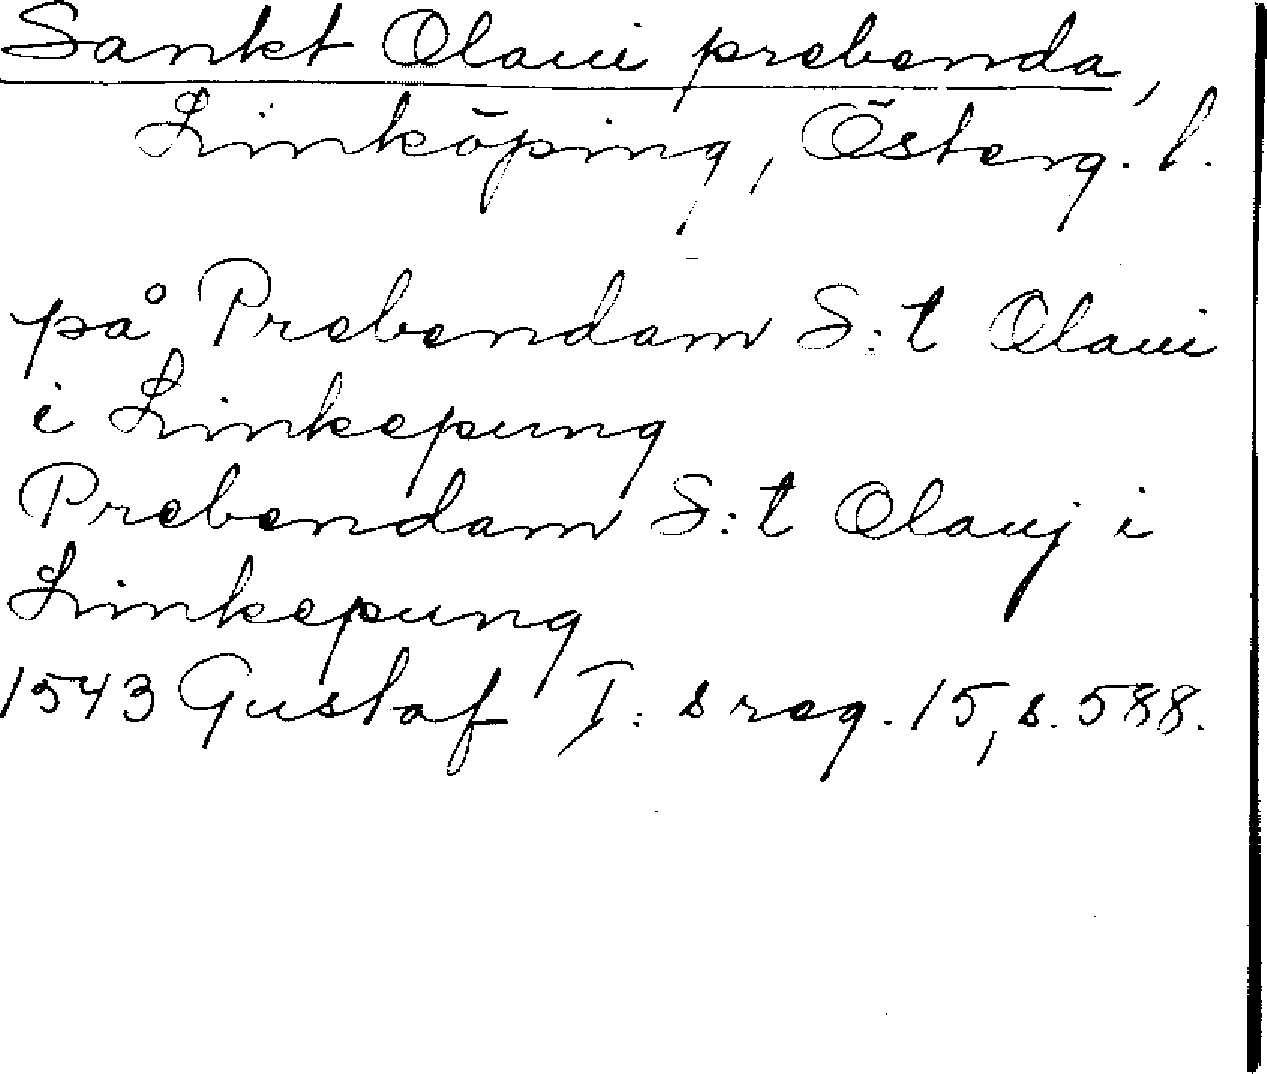 Sankt Olaui prebenda,
Linköping, Österg. l.
på Prebendam S:t Olaui
i Linkepung
Prebendam S:t Olauj i
Linkepung
1543 Gustaf I:s reg. 15, s. 588.